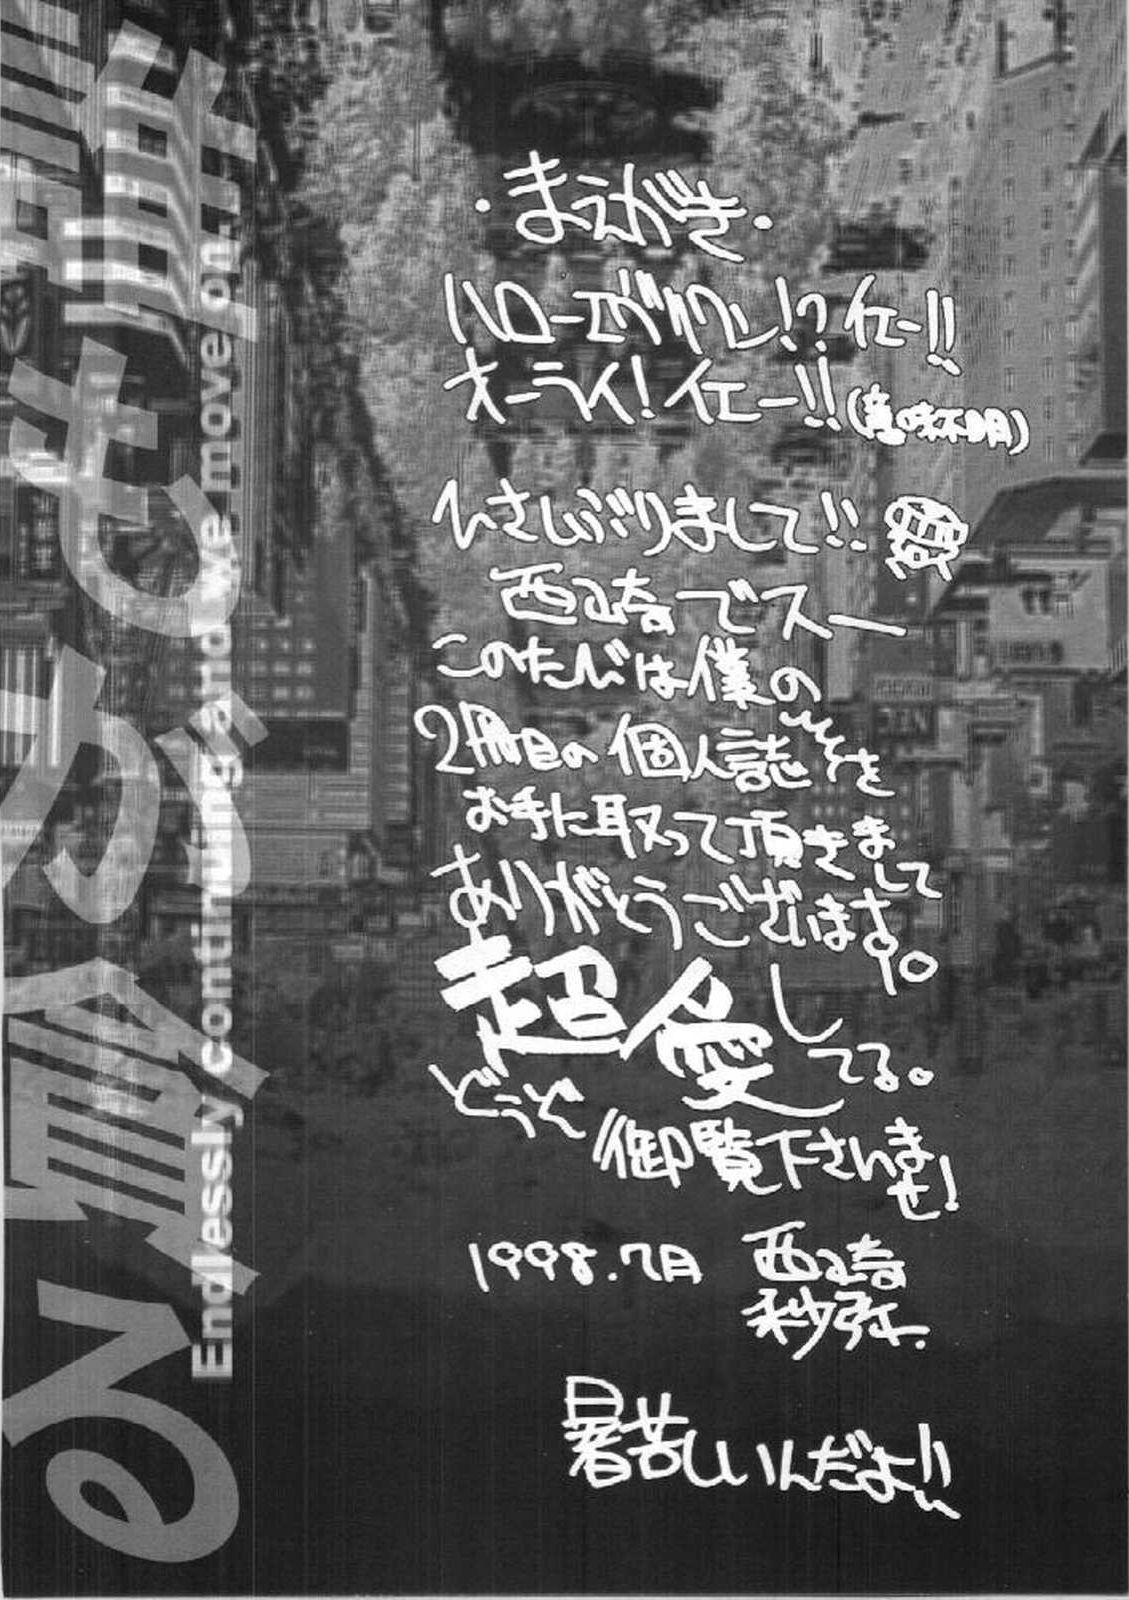 ・まえがき・
ハローエヴリワン!? イエー!!
オーライ! イエー!! (意味不明)
ひさしぶりまして!!
西崎でスー
このたびは僕の
2冊目の個人誌を
お手に取って頂きまして
ありがとうございます。
超愛してる。
どうぞ
御覧下さいませ!
1998.7月 西崎
秒弥.
暑苦しいんだよ!!
Endlessly continuing and we move on.